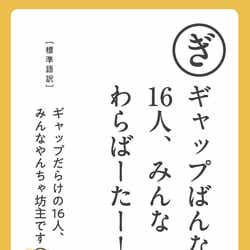 ぎ
ギャップばんな
16人、みんな
わらばーたー！
［標準語訳］
ギャップだらけの16人、
みんなやんちゃ坊主です